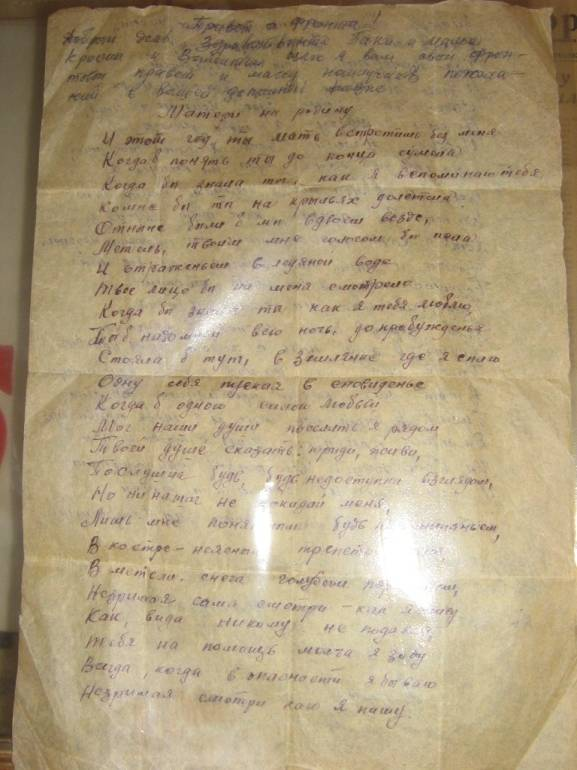 Привет с фронта!
Добрый день, Здравствуйте папа и мама
и шлю я вам свой фрон-
товой привет и массу наилучших пожела-
ний в вашей домашней жизни
Матери на родину
И этот год ты мать встретишь без меня
Когда б понять ты до конца сумела
Когда бы знала ты, как я вспоминаю тебя
Ко мне бы ты на крыльях долетела
Отныне были б мы вдвоем везде,
Метель, твоим мне голосом бы пела
И отраженьем в ледяной воде
Твое лицо бы на меня смотрело
Когда бы знала ты как я тебя люблю,
Ты б надо мной всю ночь, до пробужденья
Стояла б тут, в землянке где я сплю
Одну себя пуская в сновиденье
Когда б одною силой любви
Мог наши души поселить я рядом
Твоей душе сказать: приди, живи,
Послушай будь, будь недоступна взглядом,
Но ни на шаг не покидай меня,
Лишь мне понятным будь
В костре - неясный трепет
В метели - снега голубым
Незримая сама смотри - как я пишу
Как, вида никому не подавая
Тебя на помощь молча я зову
Всегда, когда в опасности я бываю
Незримая смотри как я пишу.